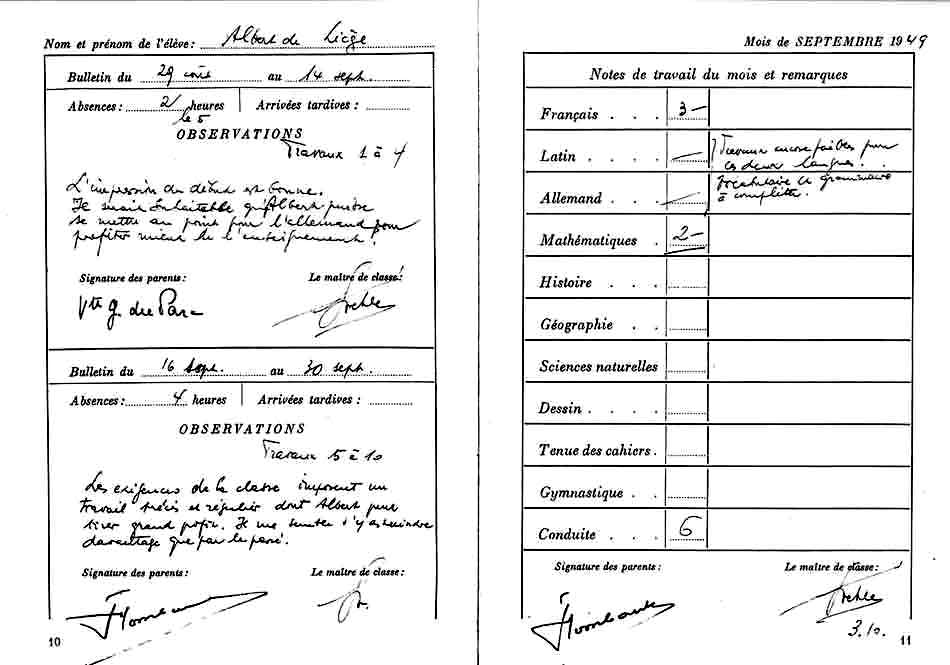 Nom et prénom de l'élève: Albert de Liège
Bulletin du 29 août au 14 sept.
Absences: 2 heures Arrivées tardives:
le 5
OBSERVATIONS
Travaux 1 à 4
L'impression du début est bonne.
Je serais souhaitable qu'Albert puisse
se mettre au point pour l'allemand pour
profiter mieux de l'enseignement.
Signature des parents: Le maître de classe:
Vte G. du Parc
Bulletin du 16 sept. au 30 sept.
Absences: 4 heures Arrivées tardives:
OBSERVATIONS
Travaux 5 à 10
Les exigences de la classe imposent un
travail précis et régulier dont Albert peut
tirer grand profit. Je me s'y astreindre
davantage que par le passé.
Signature des parents: Le maître de classe:
10
Mois de SEPTEMBRE 1949
Notes de travail du mois et remarques
Français . . . 3-
Latin . . . . — Travaux encore faibles pour
ces deux langues.
Allemand . . . — Vocabulaire et grammaire
à compléter.
Mathématiques . 2-
Histoire . . .
Géographie . .
Sciences naturelles
Dessin . . . .
Tenue des cahiers .
Gymnastique . .
Conduite . . . 6
Signature des parents: Le maître de classe:
3.10.
11